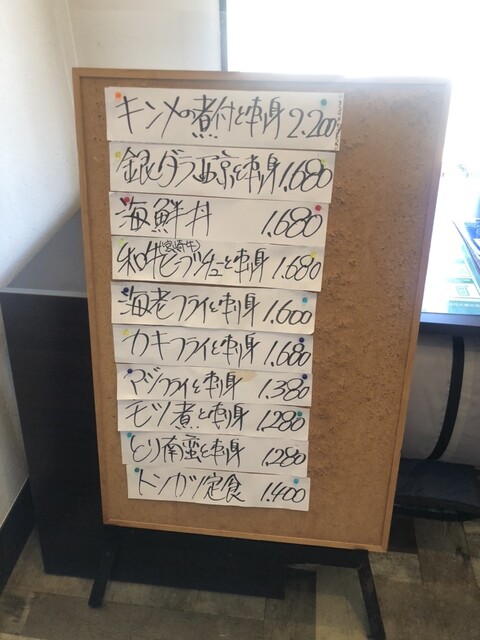 キンメの煮付と刺身 2.200
銀ダラ西京と刺身 1.680
海鮮丼 1.680
(宮崎牛)
和牛ビーフシチューと刺身 1.680
海老フライと刺身 1.600
カキフライと刺身 1.680
アジフライと刺身 1.380
モツ煮と刺身 1.280
とり南蛮と刺身 1.280
トンカツ定食 1.400